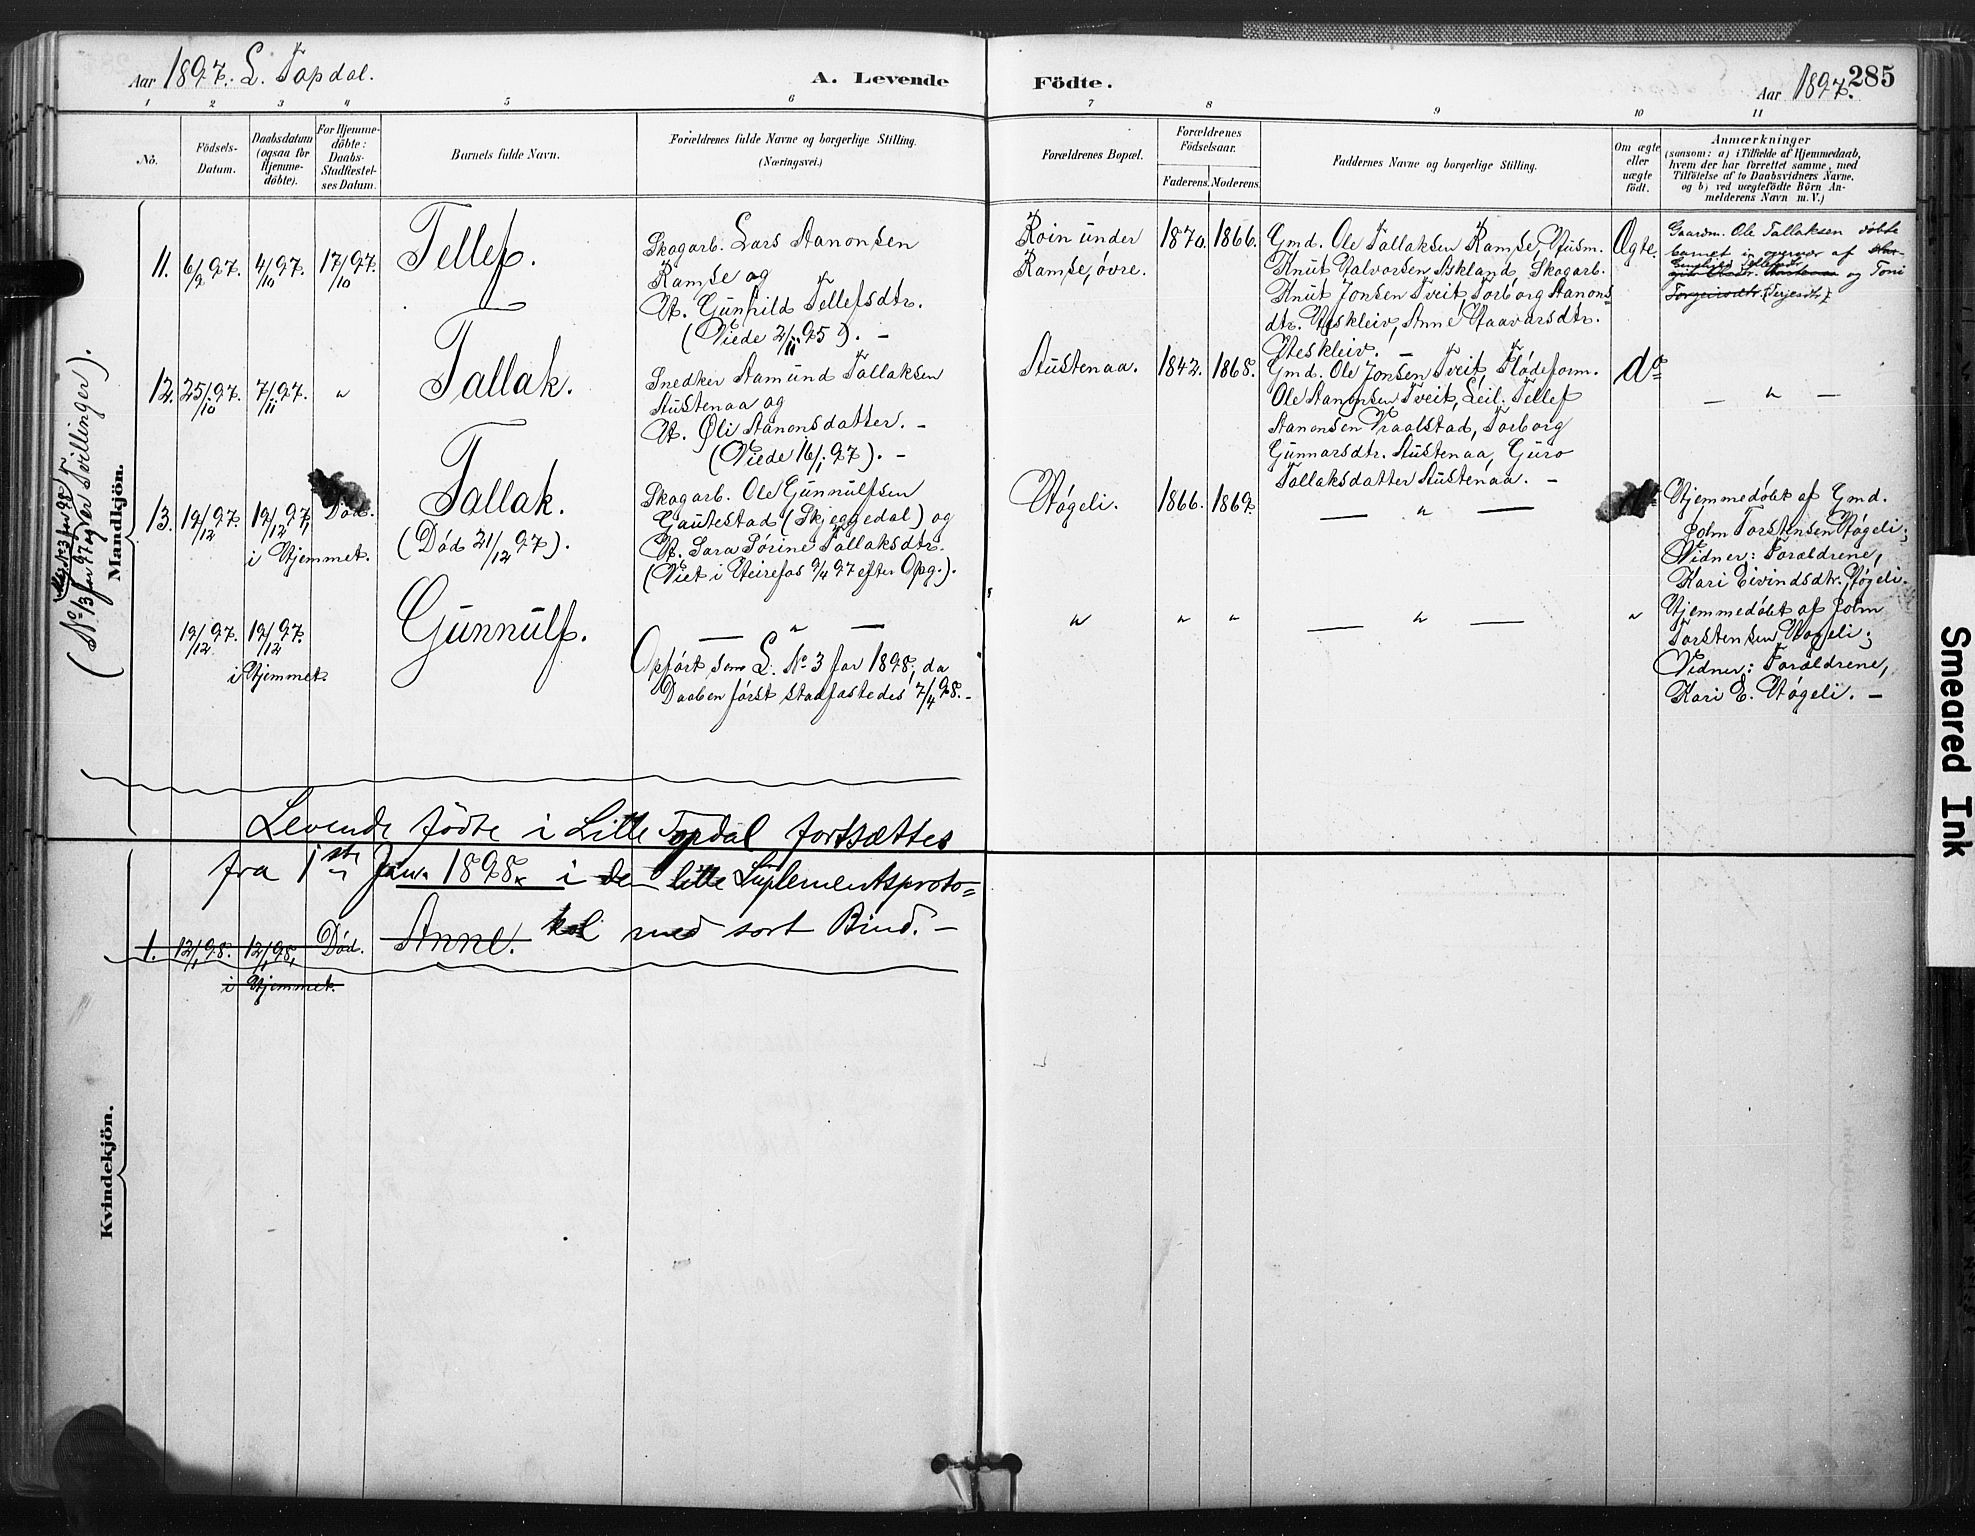 Aar 1897. L. Topdal.
A. Levende
Födte.
Aar 1897.
285
1 2 3 4 5 6 7 8 9 10 11
No.
Födsels-
Datum.
Daabsdatum
(ogsaa for
Hjemme-
döbte).
For Hjemme-
döbte:
Daabs-
Stadfæstel-
ses Datum.
Barnets fulde Navn.
Forældrenes fulde Navne og borgerlige Stilling.
(Næringsvei.)
Forældrenes Bopæl.
Forældrenes
Födselsaar.
Faderens. Moderens.
Faddernes Navne og borgerlige Stilling.
Om ægte
eller
uægte
födt.
Anmærkninger
(saasom: a) i Tilfælde af Hjemmedaab,
hvem der har forrettet samme, med
Tilföielse af to Daabsvidners Navne,
og b) ved uægtefödte Börn An-
melderens Navn m. V.)
Mandkjön.
(No 13 for 97 og er Tvillinger).
11. 6/9 97. 4/10 97. 17/10 97.
Tellef.
Skogarb. Lars Aanonsen
Ramse og
H. Gunhild Tellefsdtr.
(Viede 2/11 95). –
Roin under
Ramse, øvre.
1870. 1866.
Gmd. Ole Tallaksen Ramse, Husm.
Knut Halvorsen Askland, Skogarb.
Knut Jonsen Tveit, Torborg Aanons-
dtr. Heskleiv, Anne Haavarsdtr.
Heskleiv. –
Ægte.
Gaardm. Ole Tallaksen døbte
barnet i overvær af
Tellefsdtr. og Toni
Torgeirsdtr. (Terjesdtr.)
12. 25/10 97. 7/11 97. "
Tallak.
Snedker Aamund Tallaksen
Austenaa og
H. Øli Aanonsdatter. –
(Viede 16/1 97). –
Austenaa.
1842. 1868.
Gmd. Ole Jonsen Tveit, Flødeform.
Ole Aanonsen Tveit, Leil. Tellef
Aanonsen Vraalstad, Torborg
Gunnarsdtr. Austenaa, Guro
Tallaksdatter Austenaa. –
do
– " –
13. 19/12 97. 19/12 97,
i Hjemmet.
Død.
Tallak.
(Død 21/12 97).
Skogarb. Ole Gunnulfsen
Gautestad (Skjeggedal) og
H. Sara Sørine Tallaksdtr.
(Viet i Veirefos 9/4 97 efter Opg.).
Høgeli.
1866. 1869.
— " —
do
Hjemmedøbt af Gmd.
John Torstensen Høgeli;
Vidner: Forældrene,
Kari Eivindsdtr. Høgeli.
19/12 97. 19/12 97.
i Hjemmet.
Gunnulf.
— " —
Opført som L. No 3 for 1898, da
Daaben først stadfæstedes 7/4 98. –
" " "
— " —
"
Hjemmedøbt af John
Torstensen Høgeli;
Vidner: Forældrene,
Kari E. Høgeli. –
Levende fødte i Lille Topdal fortsættes
fra 1ste Jan. 1898 i de lille Suplementsproto=
kol med sort Bind. –
1. 12/1 98. 12/1 98, Død. Anne.
i Hjemmet.
Kvindekjön.
Smeared Ink